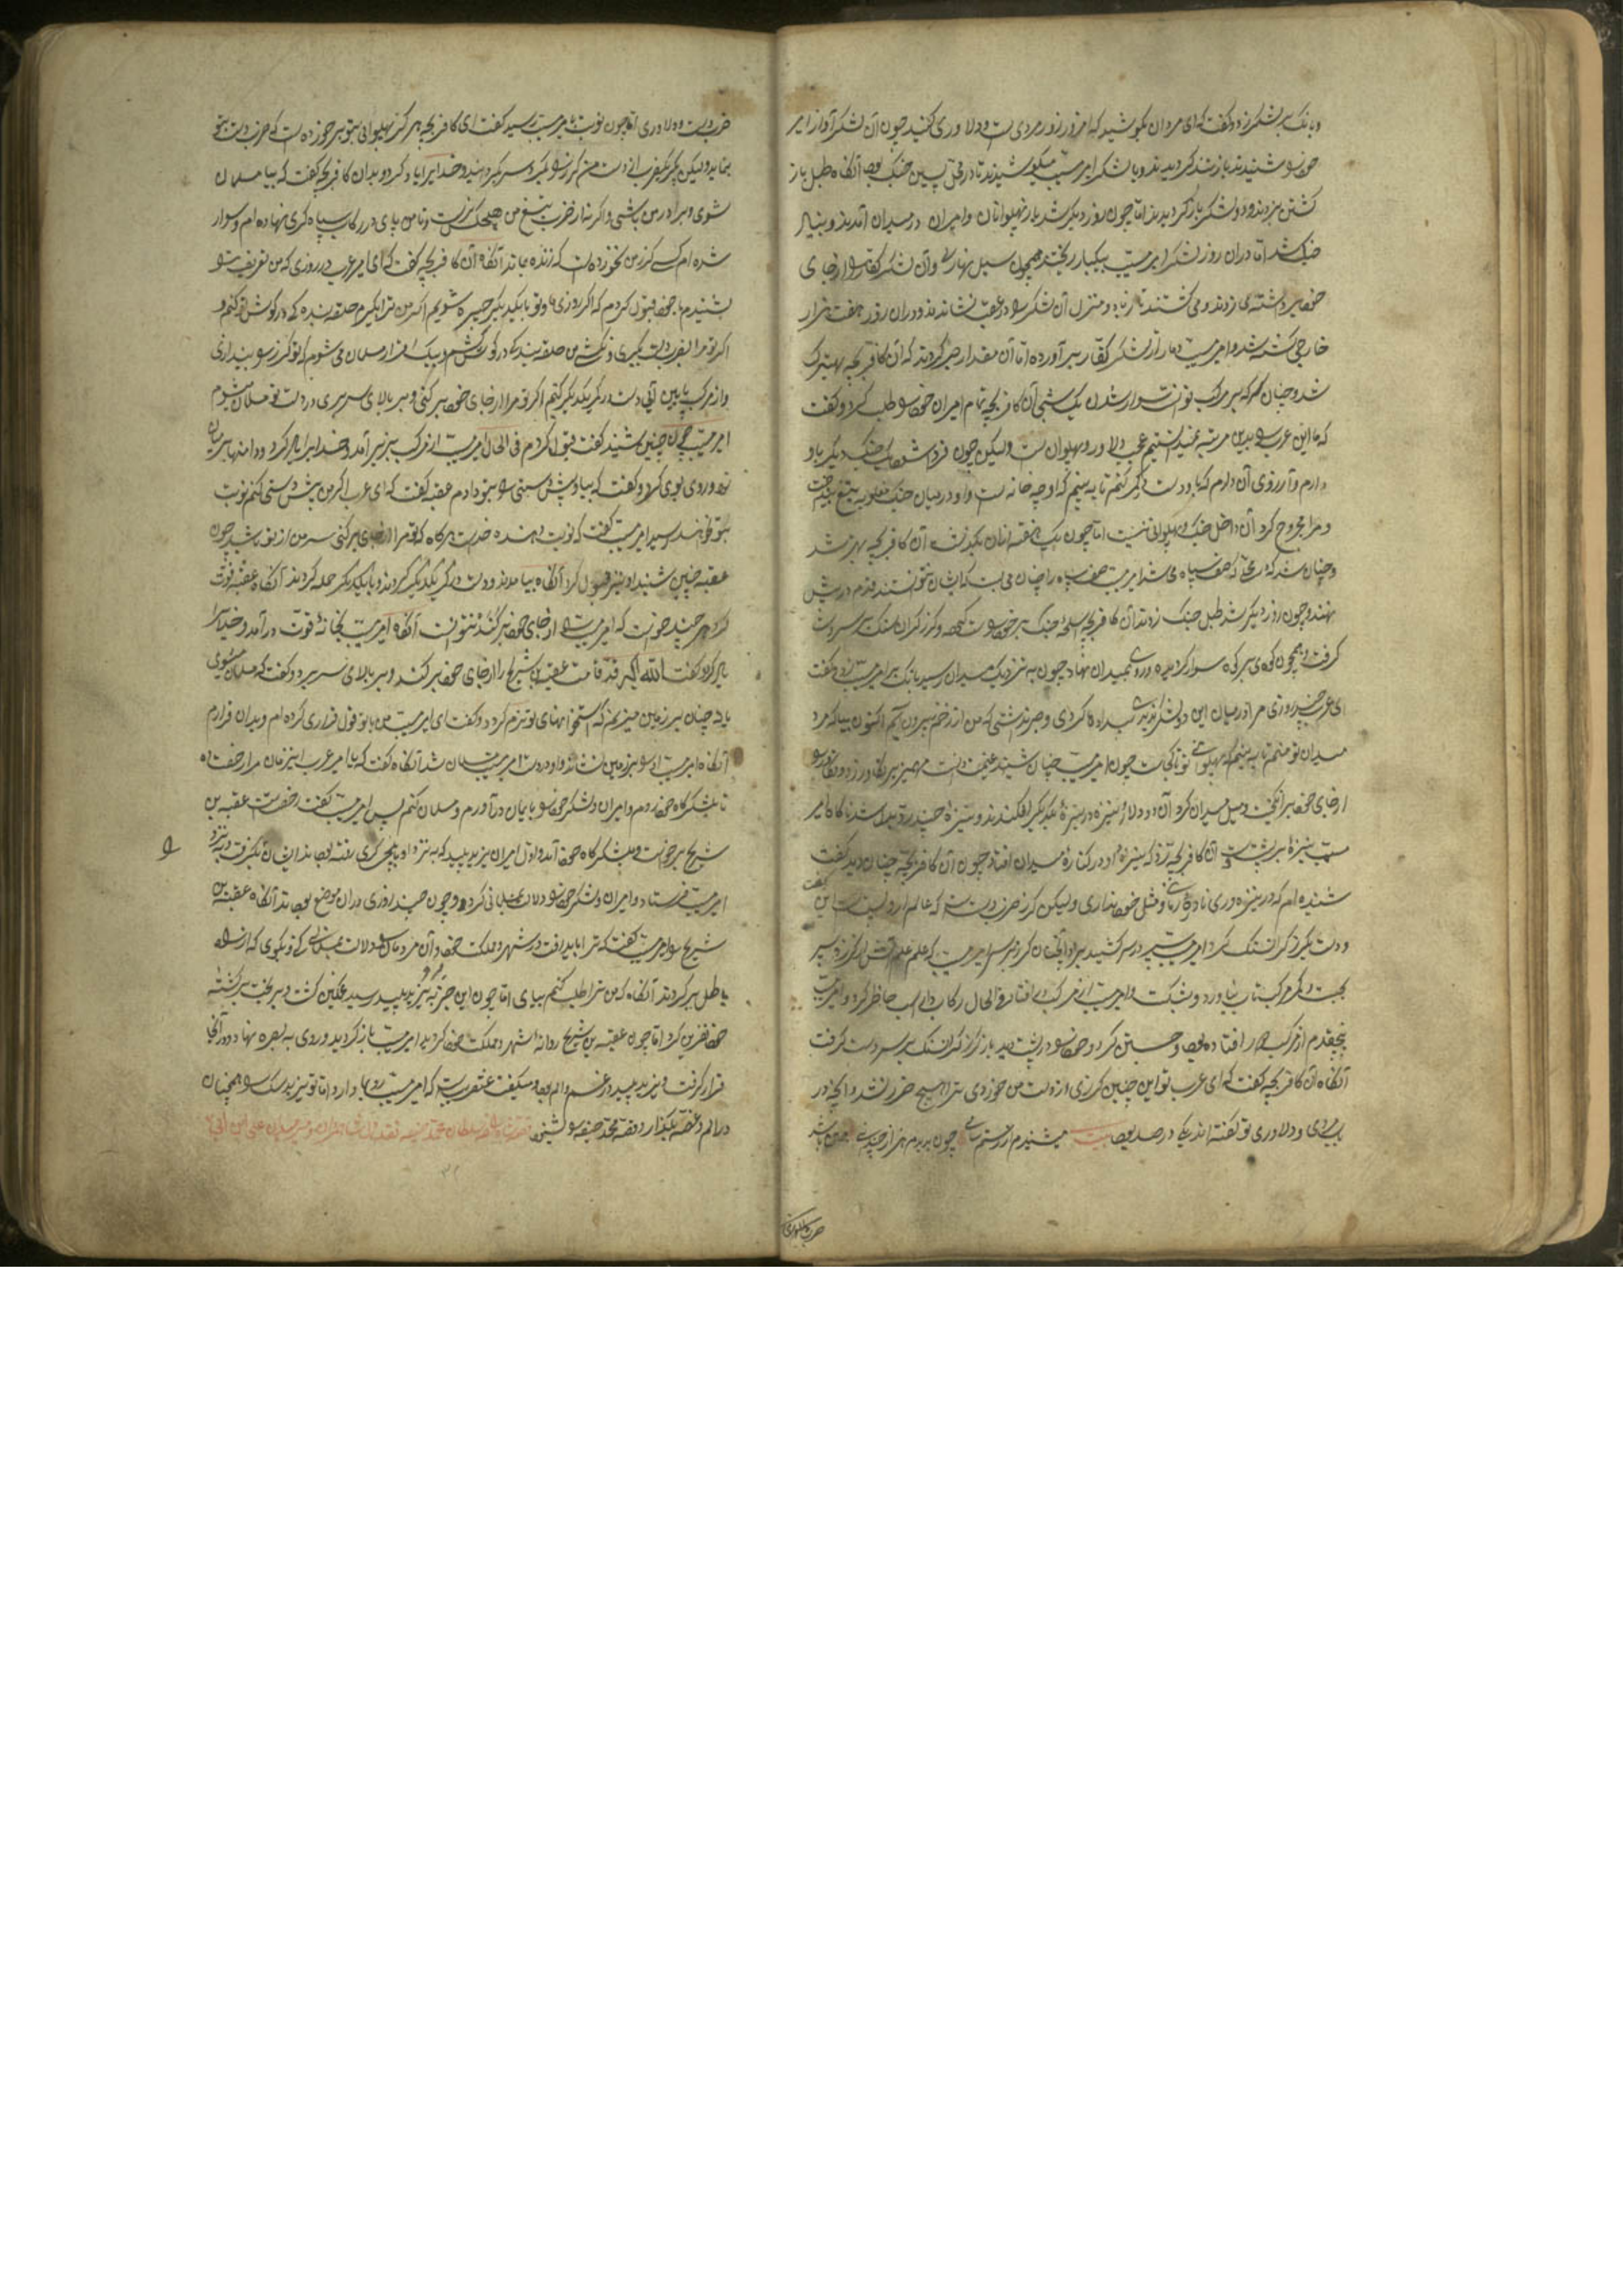 و بانک بر لشکر زد و گفت که ای مردان بکوشید که امروز روز مردی است و دلاوری کنید چون آن لشکر آواز امیر
خود شنیدند باز کردیدند و با لشکر امیر مسیب میکوشیدند تا در محل پسین جنک بود آنکاه طبل باز
کشتن بزدند و دو لشکر باز کردیدند اما چون روز دیکر شد باز پهلوانان و امیران در میدان آمدند و بنیاد
جنک شد اما در آن روز لشکر امیر مسیب بیکبار ریختند همچون سیل بهاری و آن لشکر کفار را از جای
خود برداشته می زدند و می کشتند تا و منزل آن لشکر را در عقب نشاندند و در آن روز هفت هزار
خارجی کشته شد و امیر مسیب دمار از لشکر کفار برآورده اما آن مقدار صبر کردند که آن کافر بچه بهترک
شد و چنان که بر مرکب توانست سوار شدن یک شبی آن کافر بچه تمام امیران خود را طلب کرد و گفت
که ما این عرب را بدین مرتبه نمیدانستیم عجب دلاور و پهلوان است ولیکن چون فردا شود یک جنک دیکر با او
دارم و آرزوی آن دارم که با او دست در کمر کنم تا به بینم که او چه خانه است و او در میان جنک مغلوبه تیغ انداخت
و مرا مجروح کرد آن داخل جنک و پهلوانی نیست اما چون یک هفته از آن بگذشت آن کافر بچه بهتر شد
و چنان شد که صف سپاه امیر مسیب صف سپاه را چنان می بست که ایشان نتوانستند قدم در پیش
نهند و چون روز دیکر شد طبل جنک زدند آن کافر بچه سلاح جنک بر خود راست کرد و کرز کران سنک بر سر دست
کرفت و همچون کوهی بر کوه سوار کردیده و روی بمیدان نهاد چون به نزدیک میدان رسید بانک بر امیر مسیب زد و گفت
ای عرب چند روزی مرا در میان این دو لشکر کردی و نگذاشتی که من از زخم بیرون آیم اکنون بیا که مرد
میدان تو منم تا به بینم که پهلوانی تو تا کجاست چون امیر مسیب چنان شنید غنیمت دانست مهمیز بر تکاور زد و تکاور را
از جای خود برانکیخت و میل میدان کرد آن دو دلاور نیزه در نیزه یکدیکر افکندند و نیزه چند رد و بدل شد ناکاه امیر
مسیب نیزه بر پشت آن کافر بچه زد که نیزه او در کناره میدان افتاد چون آن کافر بچه چنان دید گفت
شنیده ام که در نیزه وری نادره زمانی و مثل خود نداری ولیکن کرز ضرب دست است که عالم آرا و لیست این بگفت
و دست بکرز کران سنک کرد امیر مسیب سپر در سر کشید و آنچنان کرز بر سر امیر مسیب که علم علم آتش از کرز و سپر
بجست و کمر مرکب تاب نیاورد و بشکست و امیر مسیب از مرکب در افتاد فی الحال رکاب دار اسب حاضر کرد و امیر مسیب
پنج قدم از مرکب دور افتاده بود و جستن کرد و خود را در پشت باز کرز کران سنک بر سر دست کرفت
آنکاه آن کافر بچه گفت که ای عرب تو این چنین کرزی از دست من خوردی ترا هیچ ضرر نشد و آنچه در
مردی و دلاوری تو گفته اند یکی در صد بود بیت میشنیدم از رستم چون بدیدم هزار چندانی
ضرب دلاوری
ضرب دست و دلاوری اما چون نوبت بامیر مسیب رسید گفت ای کافر بچه هرکز پهلوانی بتو برخورده است که ضرب دست بتو
بنماید ولیکن بکیر یکضرب از دست من کرز را بکرد سر بکردانید و خدایرا یاد کرد و بدان کافر بچه گفت که بیا مسلمان
شوی و برادر من باشی و اکر نه از ضرب تیغ من هیچکس نرست و تا من پای در رکاب سپاه کری نهاده ام و سوار
شده ام کسی کرز من نخورده است که زنده ماند آنکاه آن کافر بچه گفت که ای امیر عرب در روزی که من تعریف تو
شنیدم با خود قبول کردم که اکر روزی ما و تو با یکدیکر چیره شویم اکر من ترا بکیرم حلقه بندگی در گوش تو کنم و
اکر تو مرا بضرب دست بکیری و نکشی من حلقه بندگی در گوش کشم و بیک اقرار مسلمان می شوم که تو کرز را بیندازی
و از مرکب پایین آیی دست در کمر یکدیکر کنیم اکر تو مرا از جای خود بر کنی و بر بالای سر بری در دست تو مسلمان میشوم
امیر مسیب چون چنین شنید گفت قبول کردم فی الحال امیر مسیب از مرکب بزیر آمد و خدایرا یاد کرد و دامنها بر میان
زد و روی بوی کرد و گفت که بیا و پیش دستی را بتو دادم عقبه گفت که ای عرب اکر من پیش دستی کنم نوبت
بتو نخواهد رسید امیر مسیب گفت که نوبت دهنده خداست هرکاه که تو مرا از جای بر کنی سر من از تو باشد چون
عقبه چنین شنید او نیز قبول کرد آنکاه بیامدند و دست در کمر یکدیکر کردند و با یکدیکر حمله کردند آنکاه عقبه قوت
کرد هر چند خواست که امیر مسیب را از جای خود بر کند نتوانست آنکاه امیر مسیب بخانه قوت درآمد و خدایرا
یاد کرد و گفت الله اکبر قد قامت عقبه بن شریح را از جای خود بر کند و بر بالای سر برد و گفت که مسلمان میشوی
یا نه چنان بر زمین میزنم که استخوانهای تو نرم کردد و گفت ای امیر مسیب من با تو قول قراری کرده ام و بدان قرارم
آنکاه امیر مسیب او را بر زمین نشاند و او در دست امیر مسیب مسلمان شد آنکاه گفت که یا امیر عرب این زمان مرا رخصت ده
تا بلشکرگاه خود روم و امیران و لشکر خود را بایمان درآورم و مسلمان کنم پس امیر مسیب گفت رخصت است عقبه بن
شریح برخواست و بلشکرگاه خود آمد و اول امیران یزید پلید که به نزد او بایلچی کری رفته بودند ایشان را بکرفت و به نزد
امیر مسیب فرستاد و امیران و لشکر خود را دلالت بمسلمانی کرد و چون چند روزی در آن موضع بودند آنکاه عقبه بن
شریح را امیر مسیب گفت که ترا باید رفت در شهر و مملکت خود و آن مردمان را دلالت بمسلمانی کن و بکوی که از راه
باطل برکردند آنکاه که من ترا طلب کنم بیای اما چون این خبر به نزد یزید پلید رسید غمکین کشت و بر بخت برکشته
خود نفرین کرد اما چون عقبه بن شریح روانه شهر و مملکت خود کردید امیر مسیب باز کردید و روی به بصره نهاد و در آنجا
قرار کرفت و یزید پلید در غم و الم بود و میگفت عنقریب است که امیر مسیب روی بما دارد اما تو یزید سک را همچنان
در الم و غصه بگذار و قصه محمد حنفیه را بشنو